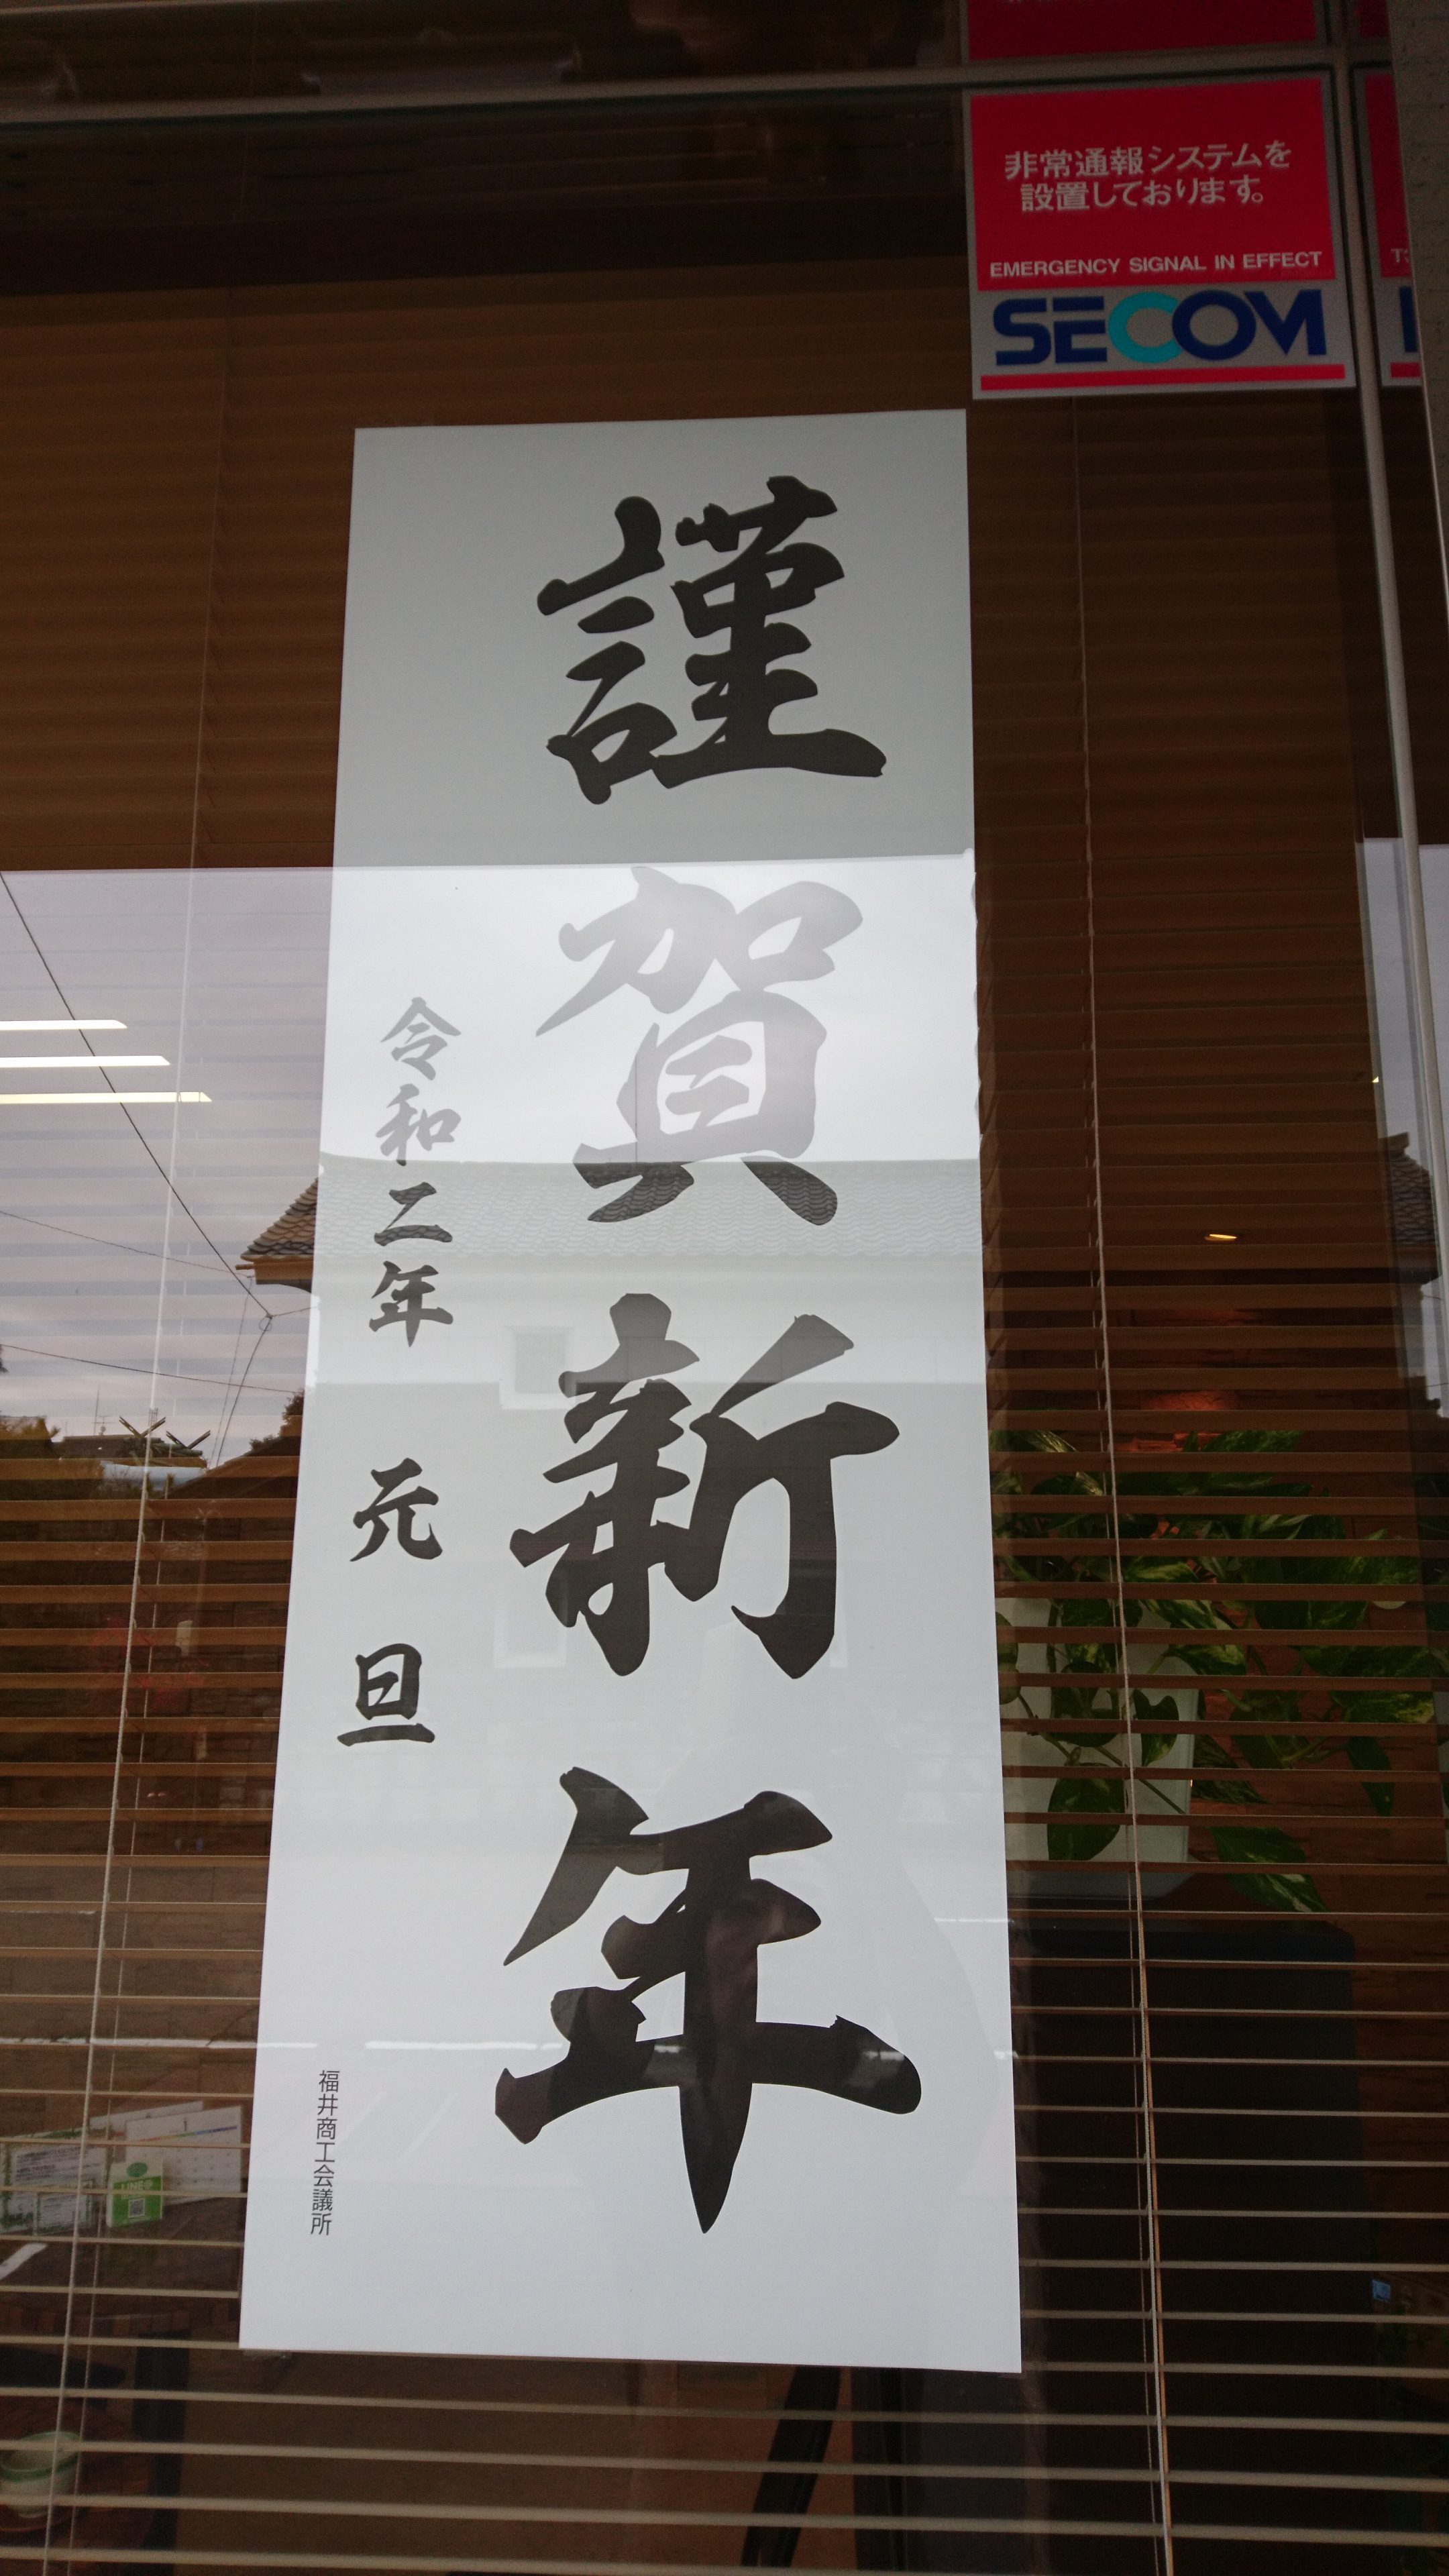 非常通報システムを
設置しております。
EMERGENCY SIGNAL IN EFFECT
SECOM
謹賀新年
令和二年 元旦
福井商工会議所